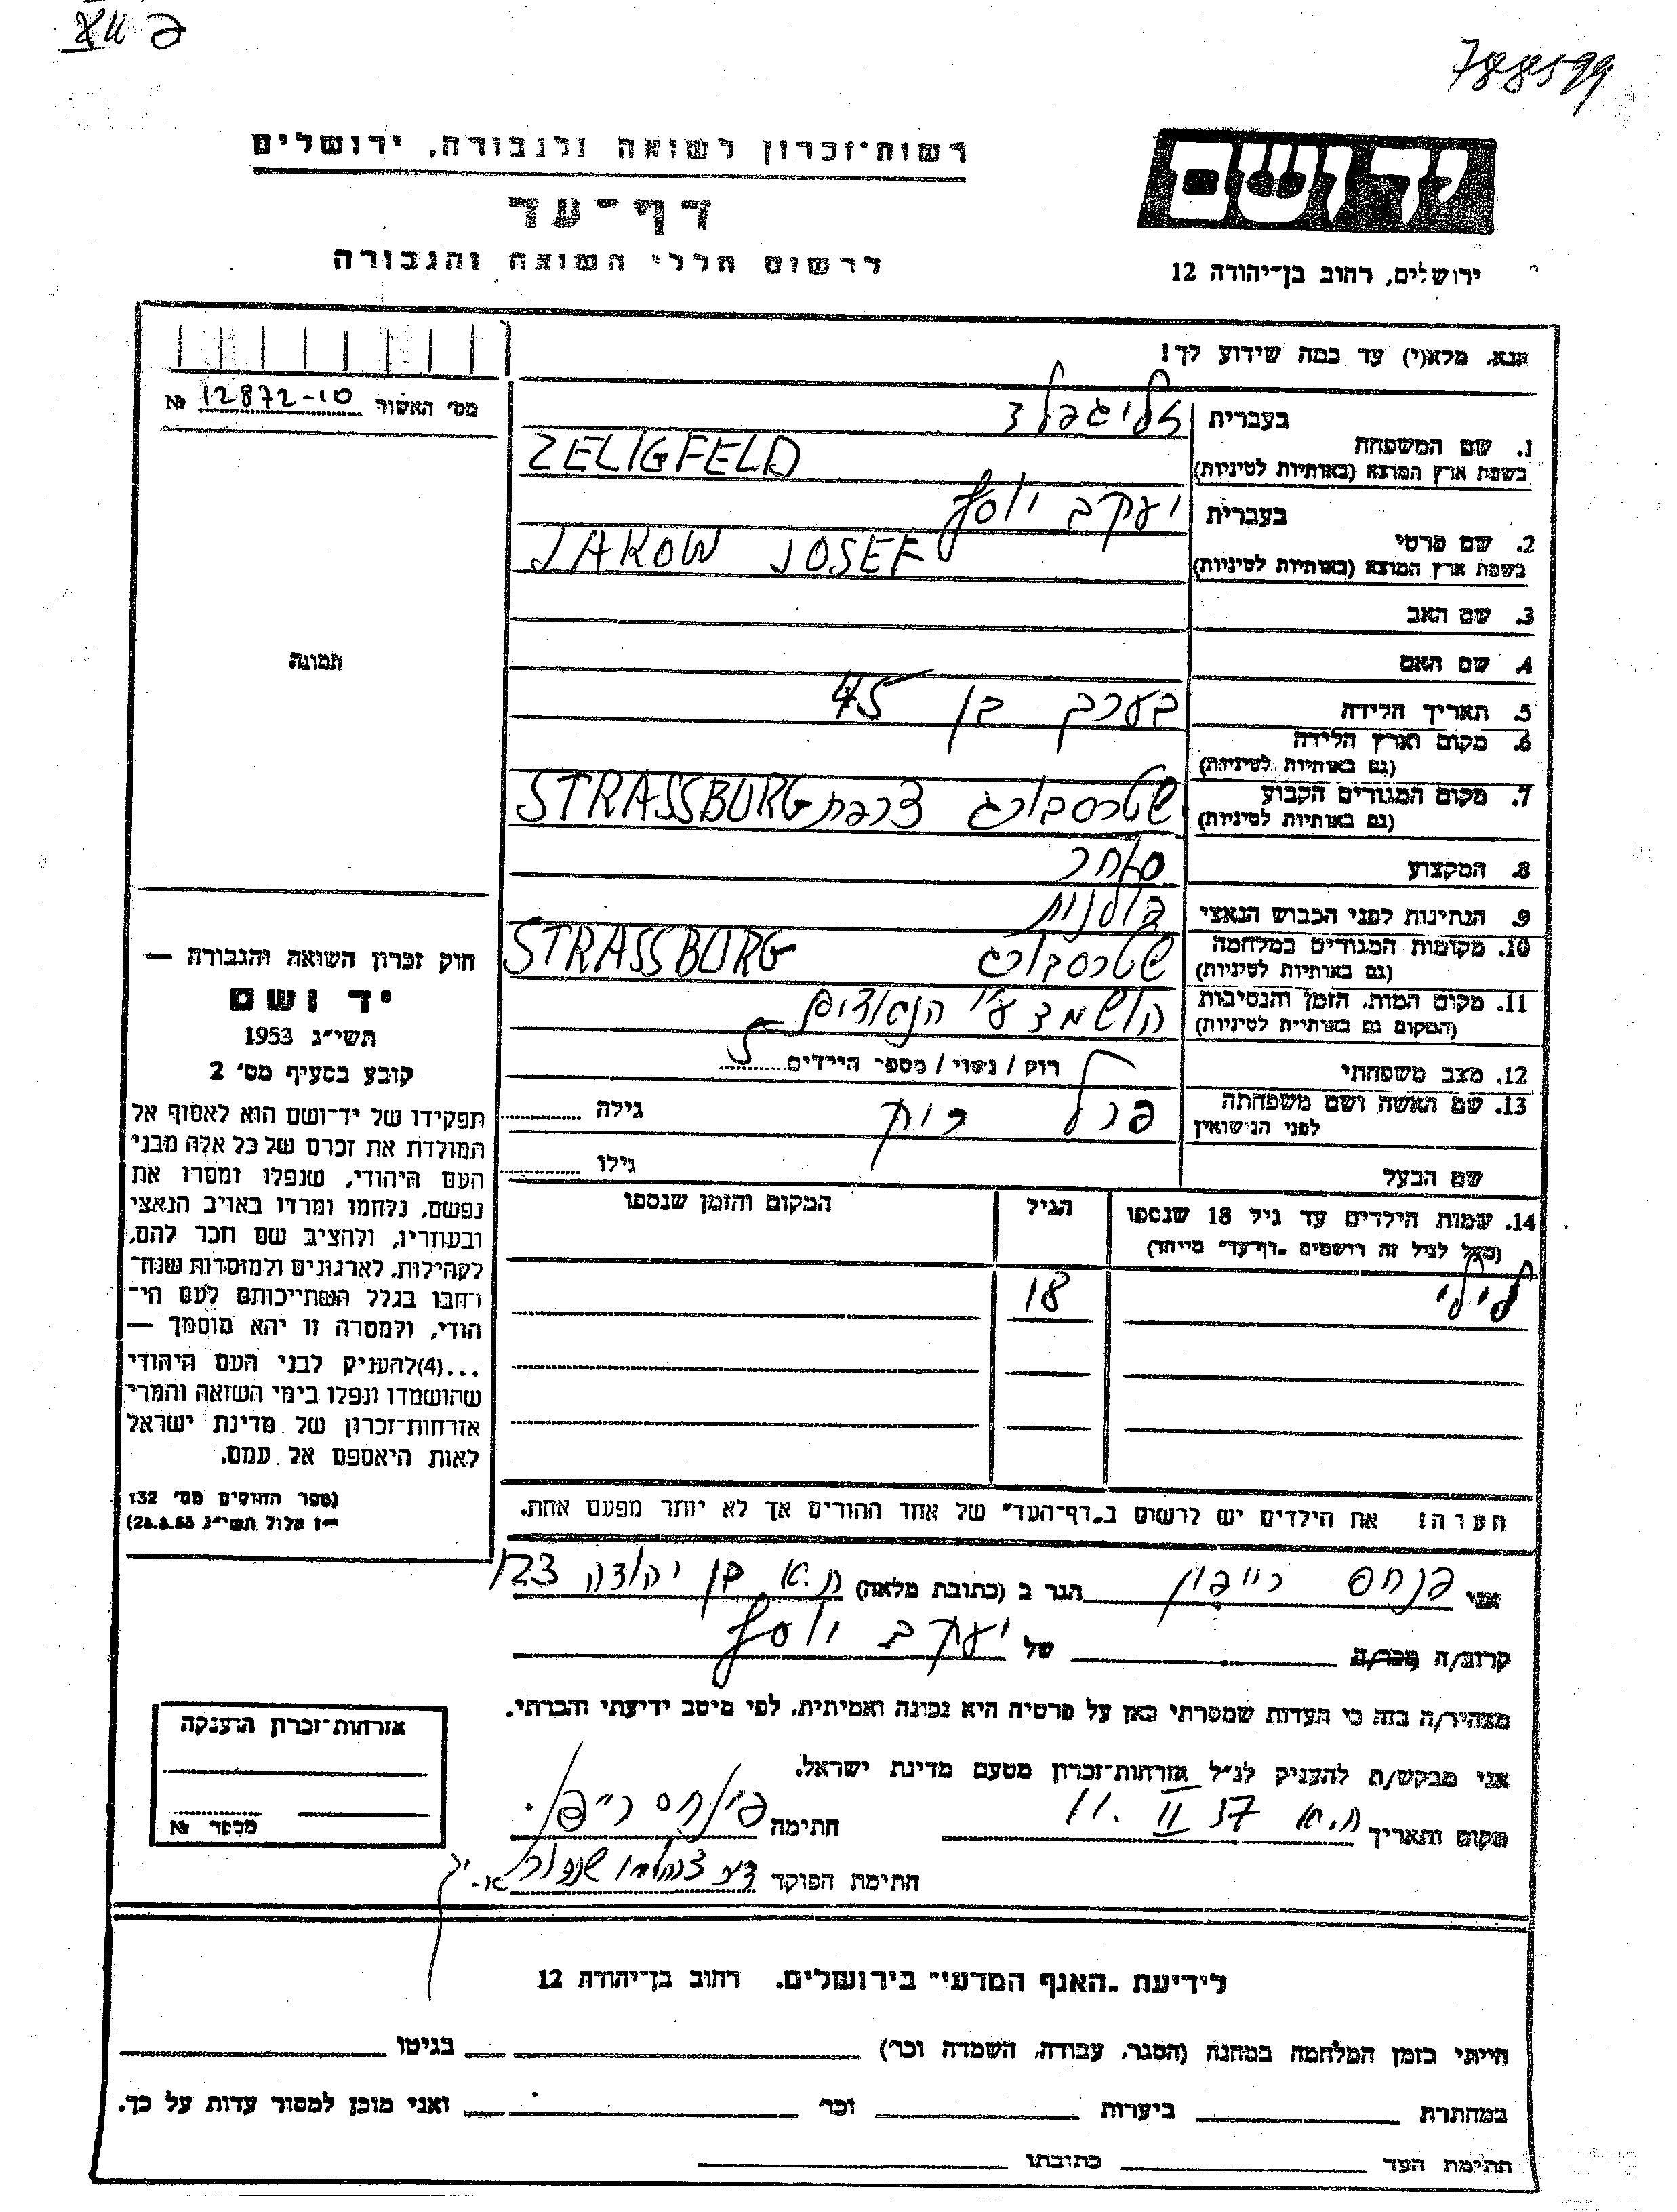 XII פ
788599
יד ושם
ירושלים, רחוב בן־יהודה 12
רשות־זכרון לשואה ולגבורה, ירושלים
דף־עד
לרשום חללי השואה והגבורה
אנא, מלא(י) עד כמה שידוע לך!
מס׳ האשור 12872-10 №
1. שם המשפחה
בעברית זליגפלד
בשפת ארץ המוצא (באותיות לטיניות) ZELIGFELD
2. שם פרטי
בעברית יעקב יוסף
בשפת ארץ המוצא (באותיות לטיניות) JAKOW JOSEF
3. שם האב
4. שם האם
5. תאריך הלידה בערך בן 45
6. מקום וארץ הלידה
(גם באותיות לטיניות)
7. מקום המגורים הקבוע שטרסבורג צרפת STRASSBURG
(גם באותיות לטיניות)
8. המקצוע סוחר
9. הנתינות לפני הכבוש הנאצי פולנית
10. מקומות המגורים במלחמה שטרסבורג STRASSBURG
(גם באותיות לטיניות)
11. מקום המות, הזמן והנסיבות הושמד ע״י הנאצים
(המקום גם באותיות לטיניות)
12. מצב משפחתי רווק / נשוי / מספר הילדים 5
13. שם האשה ושם משפחתה פרל גילה
לפני הנישואין
שם הבעל גילו
14. שמות הילדים עד גיל 18 שנספו הגיל המקום והזמן שנספו
(מעל לגיל זה רושמים „דף־עד״ מיוחד)
לילי 18
תמונה
חוק זכרון השואה והגבורה —
יד ושם
תשי״ג 1953
קובע בסעיף מס׳ 2
תפקידו של יד־ושם הוא לאסוף אל
המולדת את זכרם של כל אלה מבני
העם היהודי, שנפלו ומסרו את
נפשם, נלחמו ומרדו באויב הנאצי
ובעוזריו, ולהציב שם וזכר להם,
לקהילות, לארגונים ולמוסדות שנח־
רבו בגלל השתייכותם לעם הי־
הודי, ולמטרה זו יהא מוסמך —
...(4) להעניק לבני העם היהודי
שהושמדו ונפלו בימי השואה והמרי
אזרחות־זכרון של מדינת ישראל
לאות היאספם אל עמם.
(ספר החוקים מס׳ 132
י״ז אלול תשי״ג 28.8.53)
הערה! את הילדים יש לרשום ב„דף־העד״ של אחד ההורים אך לא יותר מפעם אחת.
אני פנחס הגר ב (כתובת מלאה) ת.א. בן יהודה 123
קרוב/ה מכר/ה של יעקב יוסף
מצהיר/ה בזה כי העדות שמסרתי כאן על פרטיה היא נכונה ואמיתית, לפי מיטב ידיעתי והכרתי.
אני מבקש/ת להעניק לנ״ל אזרחות־זכרון מטעם מדינת ישראל.
מקום ותאריך ת.א 11. II 57 חתימה פינחס
חתימת הפוקד
אזרחות־זכרון הוענקה
מספר №
לידיעת „האגף המדעי״ בירושלים, רחוב בן־יהודה 12
הייתי בזמן המלחמה במחנה (הסגר, עבודה, השמדה וכו׳) בגיטו
במחתרת ביערות וכו׳ ואני מוכן למסור עדות על כך.
חתימת העד כתובתו